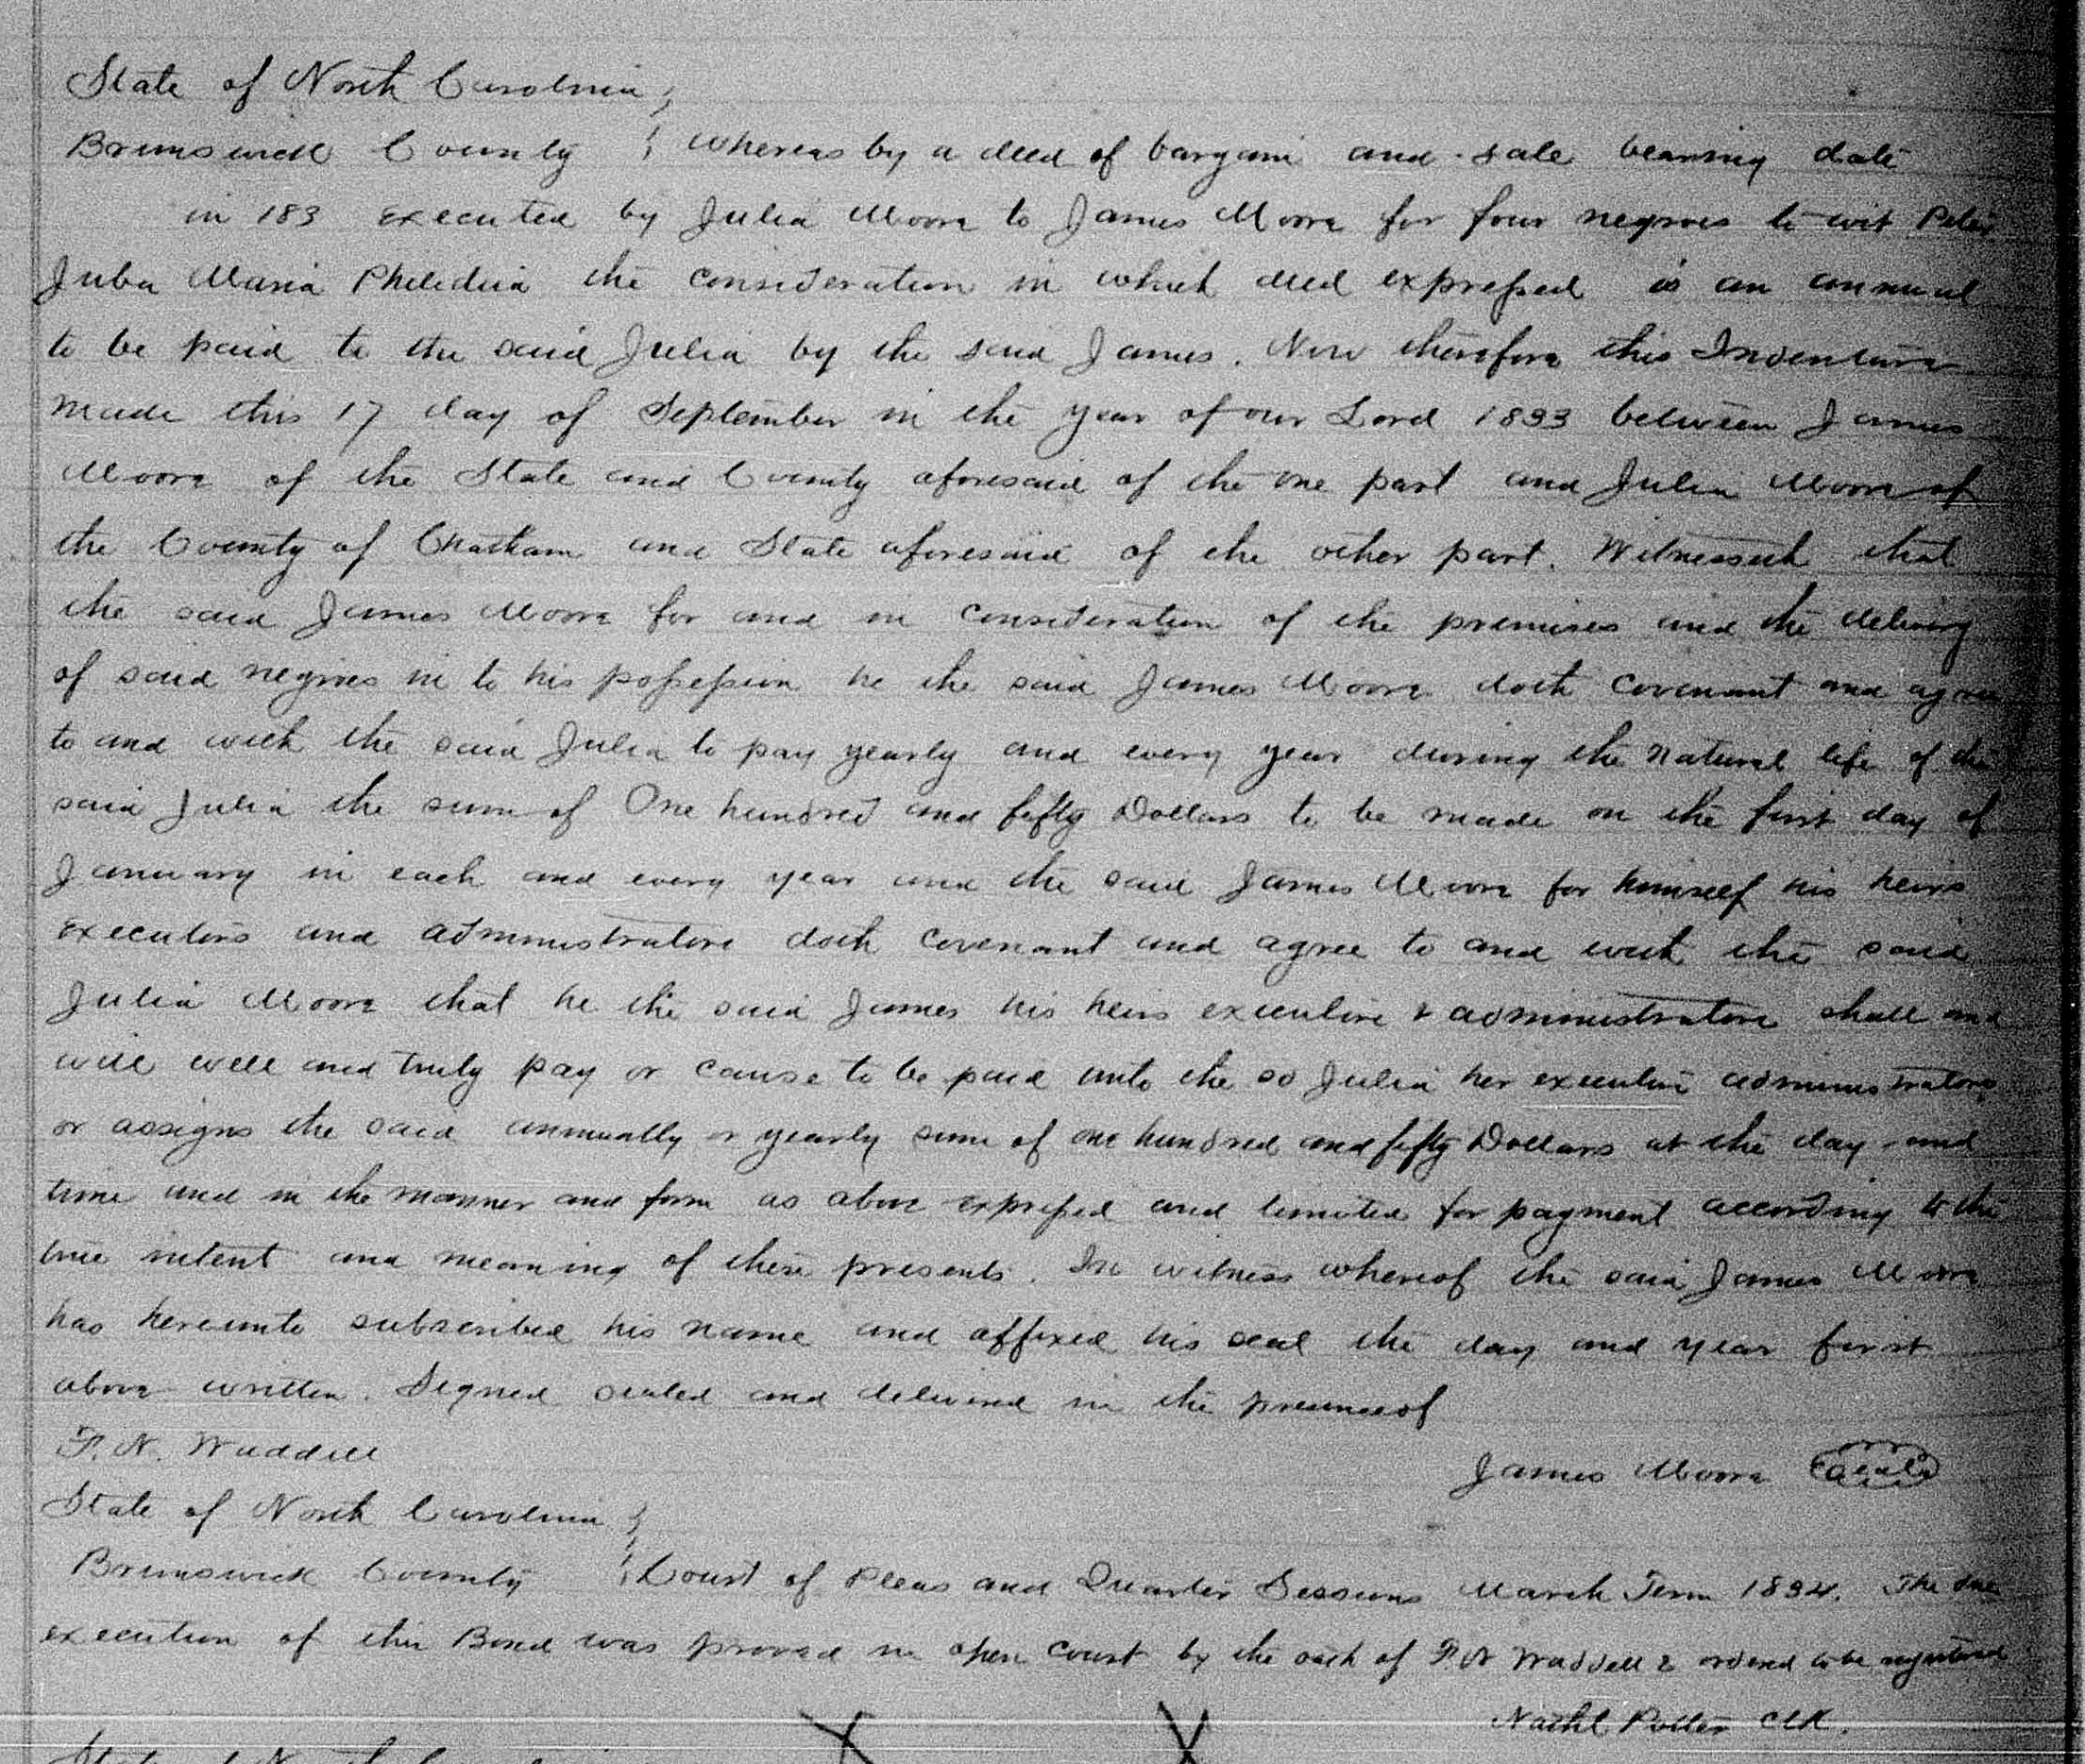 State of North Carolina }
Brunswick County } whereas by a deed of bargain and sale bearing date
in 183 executed by Julia Moore to James Moore for four negroes to wit Peter
Juba Maria the consideration in which deed expressed is an annual
to be paid to the said Julia by the said James. Now therefore this Indenture
made this 17 day of September in the year of our Lord 1833 between James
Moore of the State and County aforesaid of the one part and Julia Moore of
the County of Chatham and State aforesaid of the other part. Witnesseth that
the said James Moore for and in consideration of the premises and the delivery
of said negroes in to his possession he the said James Moore doth covenant and agree
to and with the said Julia to pay yearly and every year during the natural life of the
said Julia the sum of One hundred and fifty Dollars to be made on the first day of
January in each and every year and the said James Moore for himself his heirs
executors and administrators doth covenant and agree to and with the said
Julia Moore that he the said James his heirs executors & administrators shall and
will well and truly pay or cause to be paid unto the sd Julia her executors administrators
or assigns the said annually or yearly sum of one hundred and fifty Dollars at the day and
time and in the manner and form as above expressed and limited for payment according to the
true intent and meaning of these presents. In witness whereof the said James Moore
has hereunto subscribed his name and affixed his seal the day and year first
above written. Signed sealed and delivered in the presence of
F. N. Waddell
James Moore (seal)
State of North Carolina }
Brunswick County } Court of Pleas and Quarter Sessions March Term 1834. The due
execution of this Bond was proved in open court by the oath of F. N Waddell & ordered to be registered
Nathl Potter Clk.